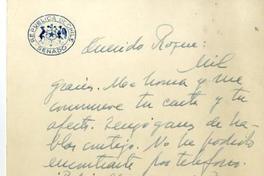 REPUBLICA DE CHILE
SENADO
Querido Roque:
Mil
gracias. Me honra y me
conmueve tu carta y tu
afecto. Tengo ganas de ha-
blar contigo. No he podido
encontrarte por teléfono.